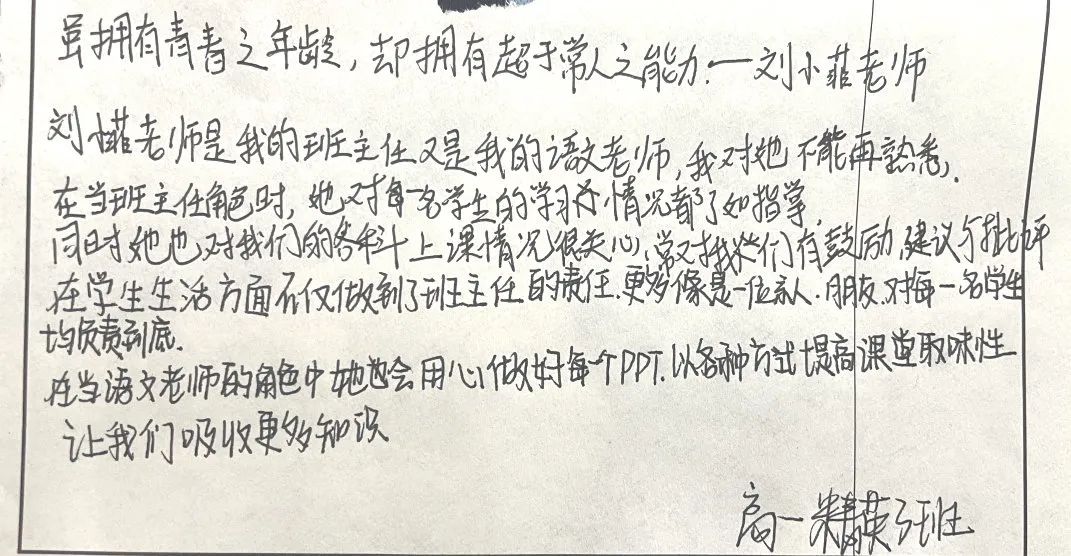 虽拥有青春之年龄，却拥有超于常人之能力.——刘小菲老师
刘小菲老师是我的班主任又是我的语文老师，我对她不能再熟悉.
在当班主任角色时，她对每一名学生的学习情况都了如指掌，
同时她也对我们的各科上课情况很关心，常对我们有鼓励，建议与批评
在学生生活方面不仅做到了班主任的责任.更多像是一位亲人.朋友.对每一名学生
均负责到底.
在当语文老师的角色中她也会用心做好每个PPT.以各种方式提高课堂取味性
让我们吸收更多知识
高一精英3班